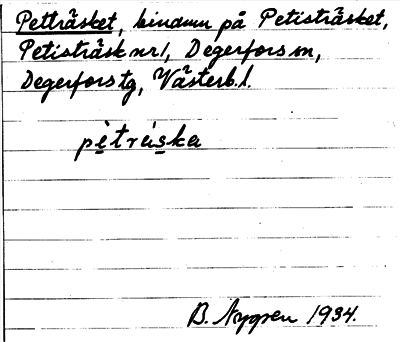 Petträsket, binamn på Petisträsket,
Petisträsk nr 1, Degerfors sn,
Degerfors tg, Västerb. l.
pètráska
B. Nygren 1934.